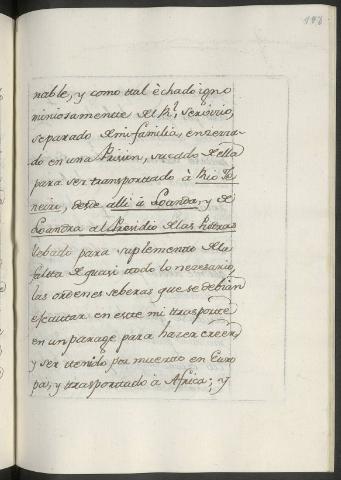 nable, y como tal èchado igno
miniosamente del Rl. Servicio,
separado de mi familia, enserra-
do en una Prision, sacado de ella
para ser transportado à Rio Je
neiro, desde alli à Loanda, y de
Loanda al Presidio de las Pedras
llebado para suplemento de la
falta de quasi todo lo necesario,
las ordenes seberas que se debian
escautar en este mi trasporte
en un parage para hazer creer,
y ser tenido por muerto en Euro
pa, y trasportado à Africa; y